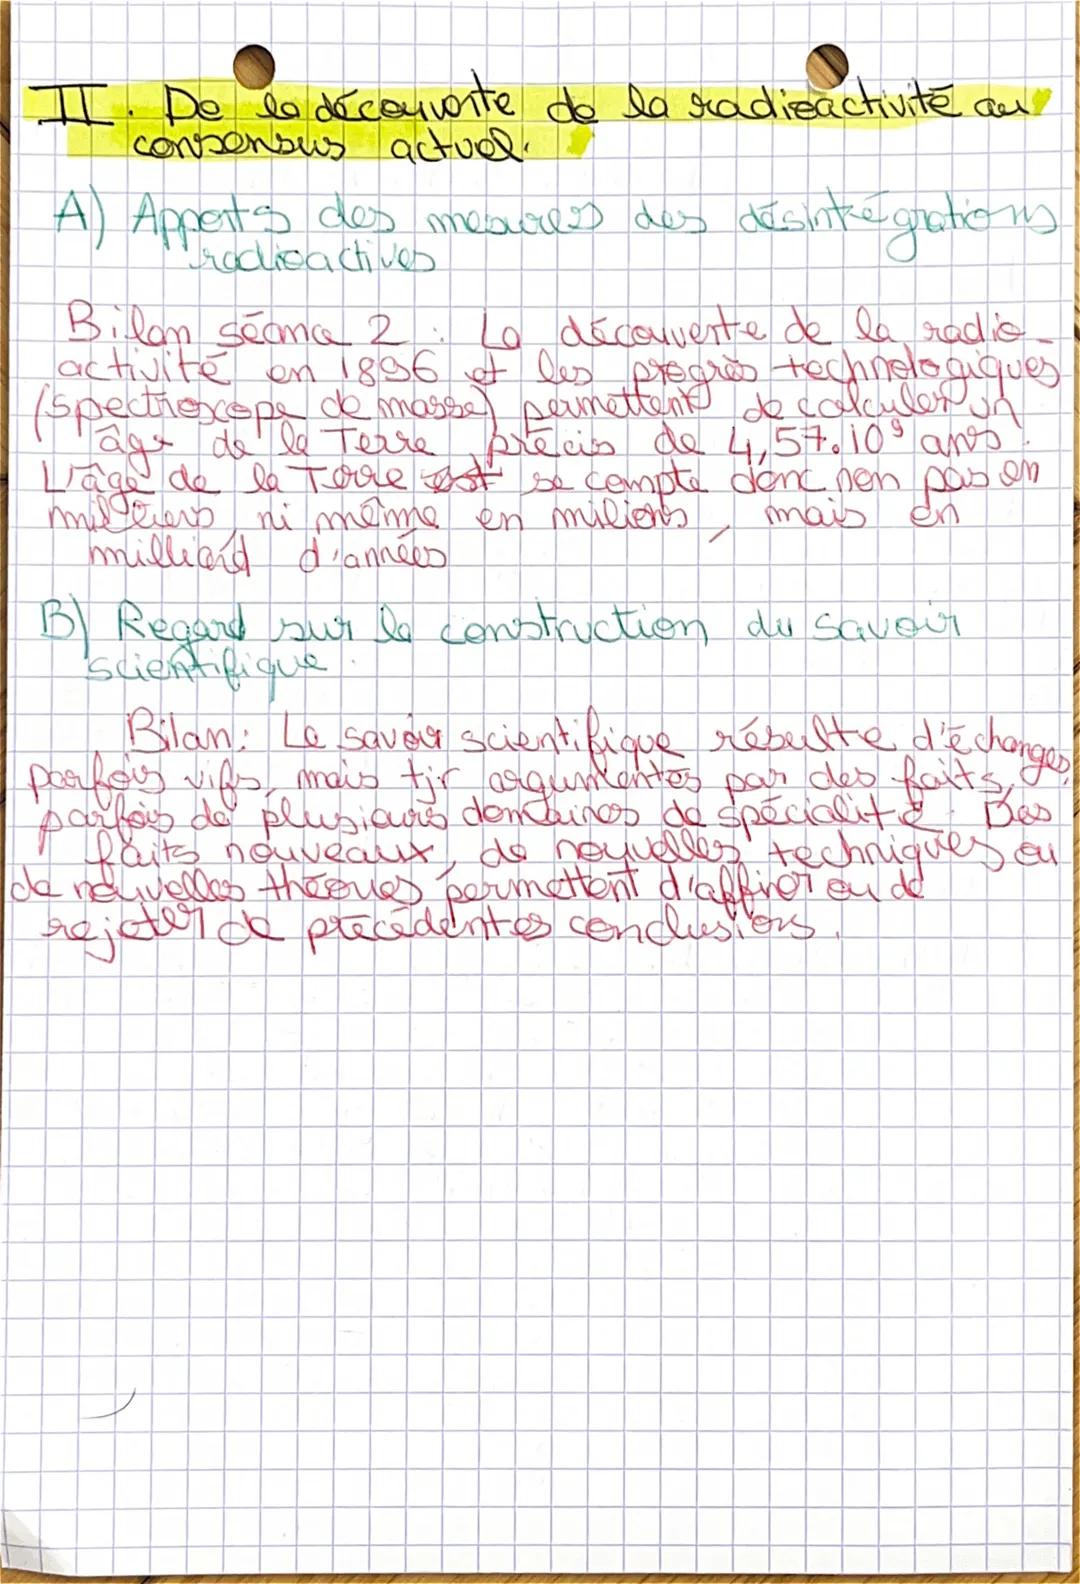 II. De la découverte de la radioactivité au
consensus actuel.
A) Apports des mesures des désintégrations
radioactives
Bilan séance 2 : La découverte de la radio-
activité en 1896 et les progrès technologiques
(spectroscope de masse) permettent de calculer un
âge de la Terre précis de 4,57.10⁹ ans.
L'âge de la Terre se compte donc non pas en
milliers, ni même en milions, mais en
milliard d'années
B) Regard sur la construction du savoir
scientifique.
Bilan: Le savoir scientifique résulte d'échanges,
parfois vifs, mais tjr argumentés par des faits,
parfois de plusieurs domaines de spécialité. Des
faits nouveaux, de nouvelles techniques ou
de nouvelles théories permettent d'affiner ou de
rejeter de précédentes conclusions.